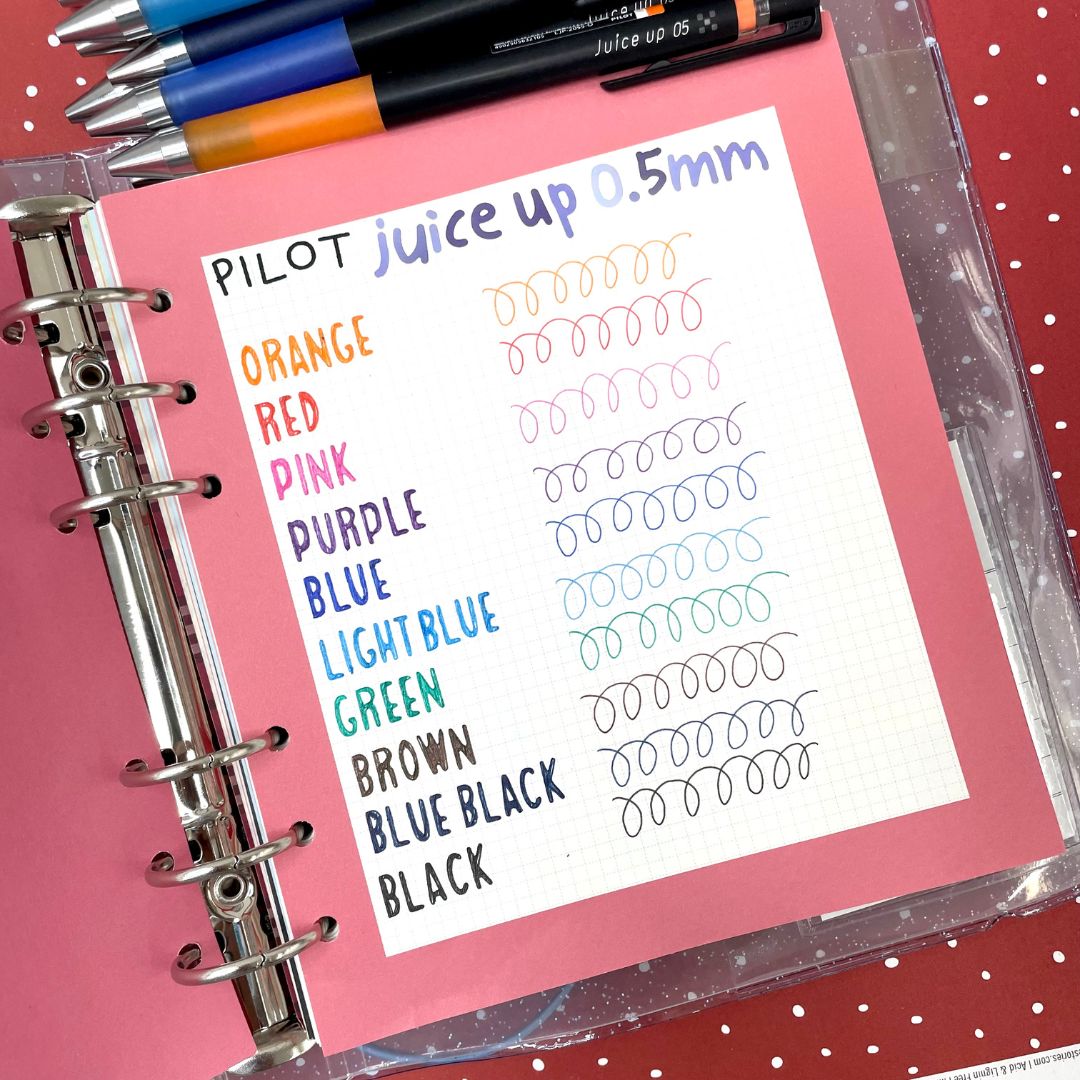 Juice up 05
PILOT
Juice up 05
PILOT juice up 0.5mm
ORANGE
RED
PINK
PURPLE
BLUE
LIGHT BLUE
GREEN
BROWN
BLUE BLACK
BLACK
estories.com | Acid & Lignin Free